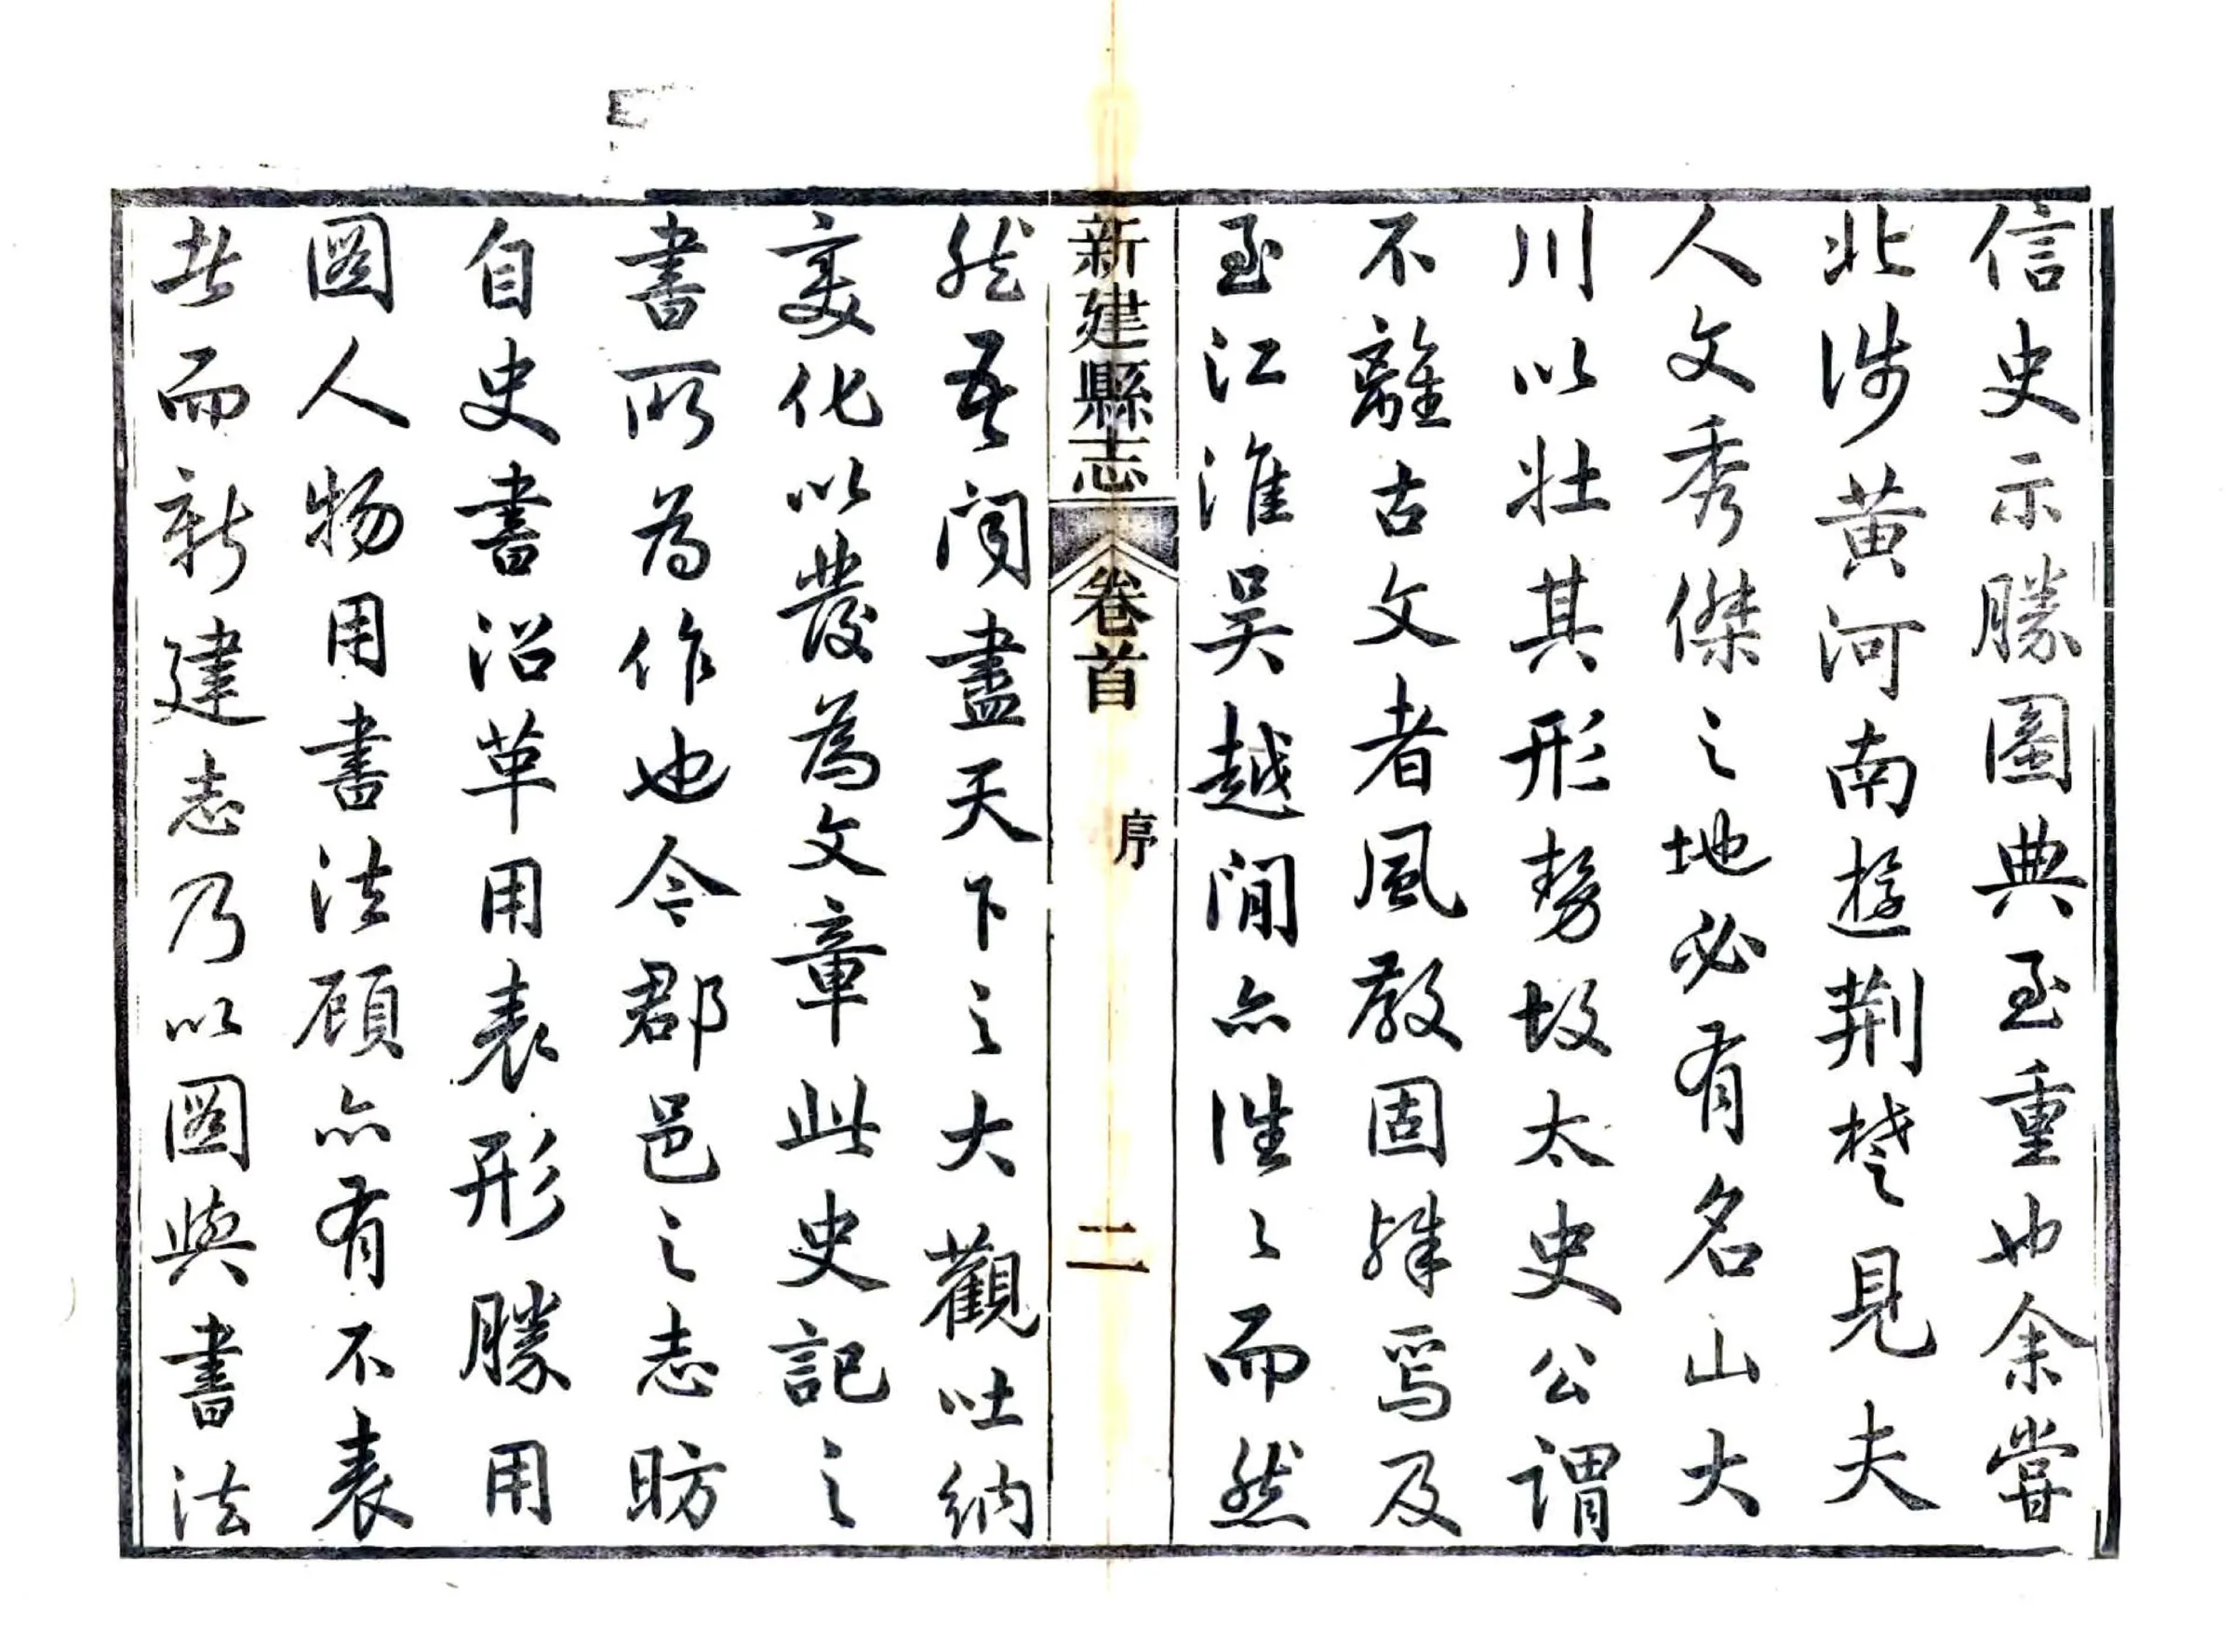 信史示勝圖典至重也余嘗
北涉黃河南遊荆楚見夫
人文秀傑之地必有名山大
川以壯其形勢故太史公謂
不離古文者風教固殊焉及
至江淮吴越間亦往〻而然
新建縣志 卷首 序 二
然吾聞盡天下之大觀吐納
變化以發為文章此史記之
書所為作也今郡邑之志昉
自史書沿革用表形勝用
圖人物用書法顧亦有不表
者而新建志乃以圖與書法